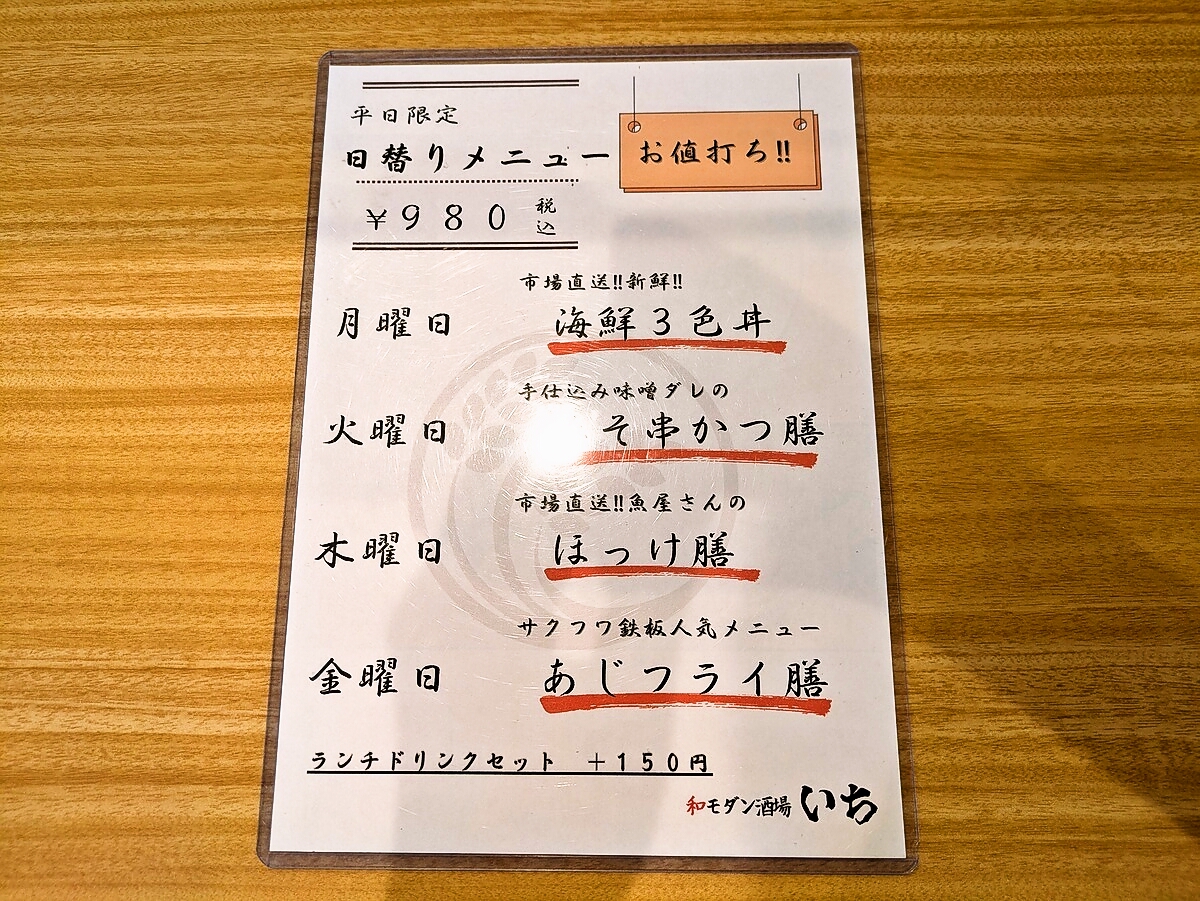 平日限定
日替りメニュー
お値打ち!!
￥980 税込
市場直送!!新鮮!!
月曜日 海鮮３色丼
手仕込み味噌ダレの
火曜日 そ串かつ膳
市場直送!!魚屋さんの
木曜日 ほっけ膳
サクフワ鉄板人気メニュー
金曜日 あじフライ膳
ランチドリンクセット ＋１５０円
和モダン酒場 いち